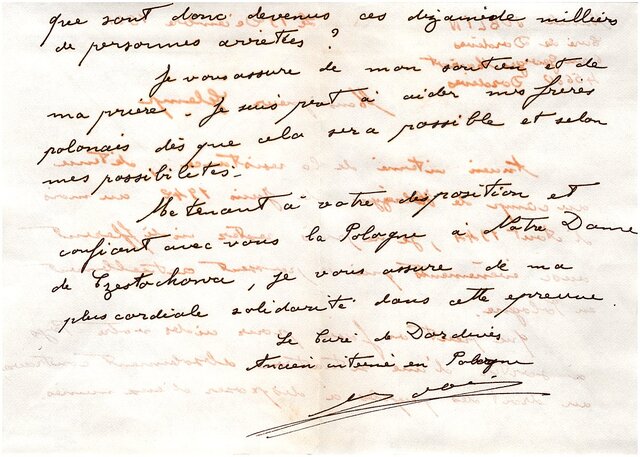 que sont donc devenus ces dizaines de milliers
de personnes arrêtées ?
Je vous assure de mon soutien et de
ma prière. Je suis prêt à aider mes frères
polonais dès que cela sera possible et selon
mes possibilités.
Me tenant à votre disposition et
confiant avec vous la Pologne à Notre Dame
de Czestochowa, je vous assure de ma
plus cordiale solidarité dans cette épreuve.
Le Curé de Dordives
Ancien interné en Pologne